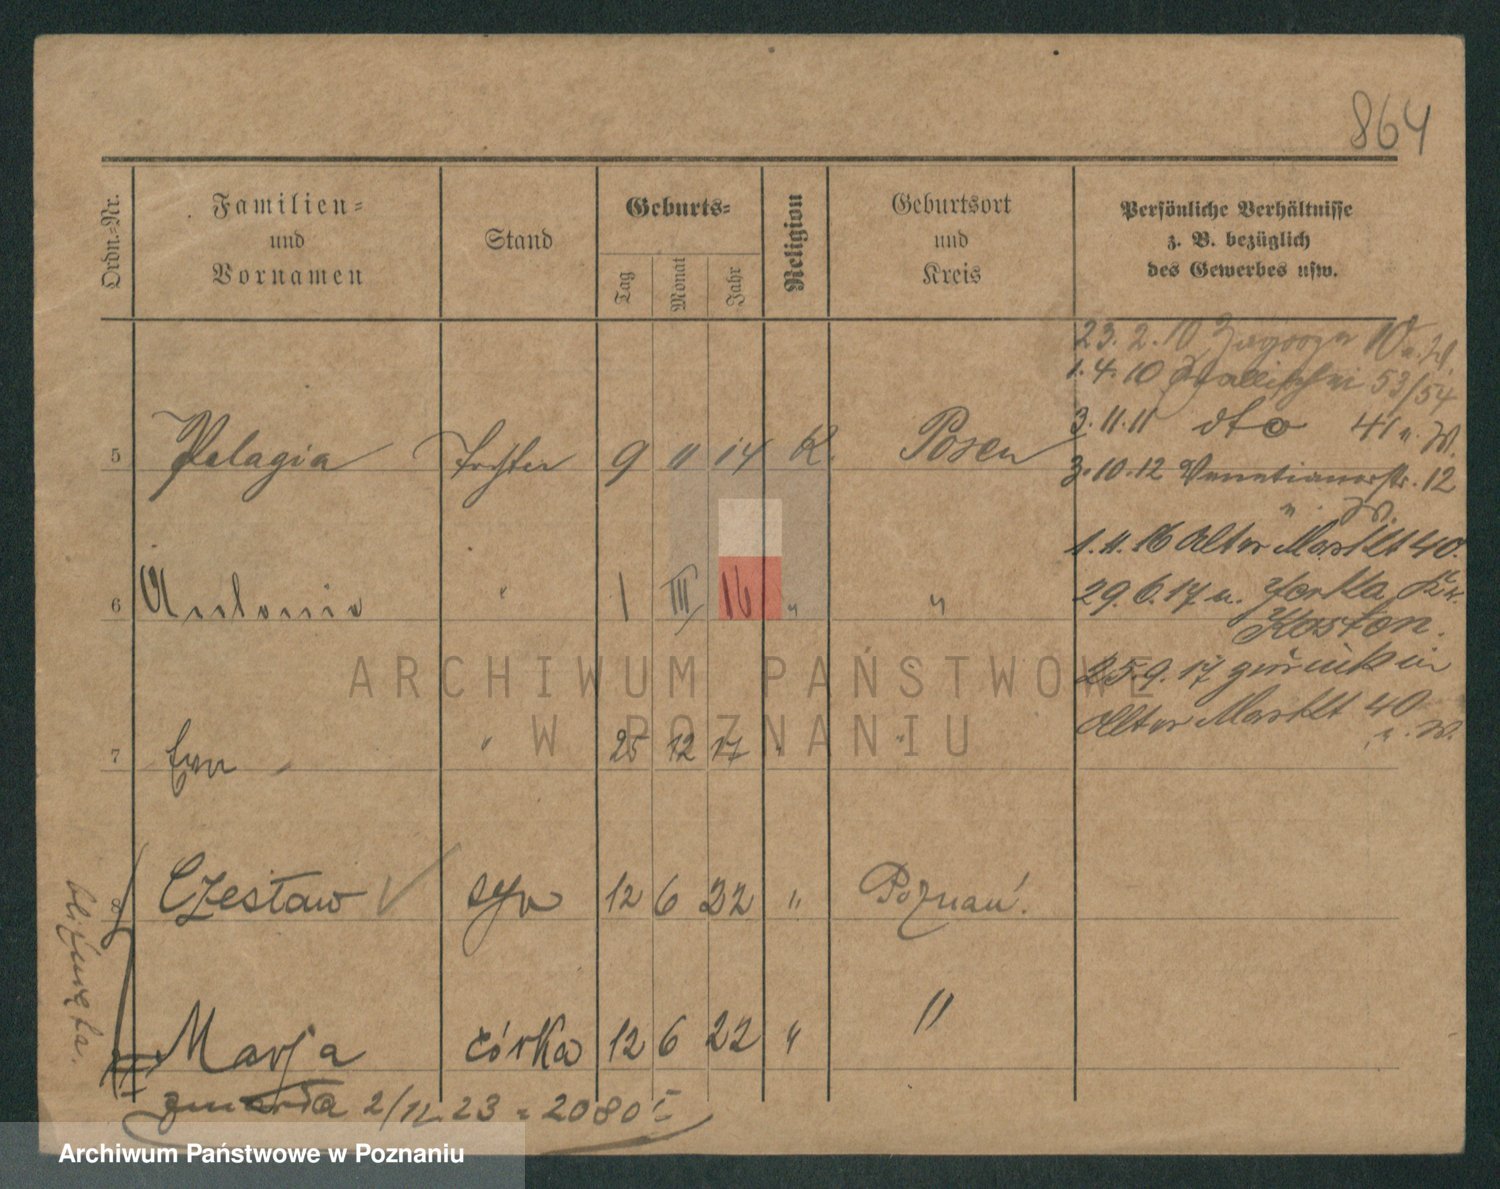 864
Ordn.-Nr.
Familien-
und
Vornamen
Stand
Geburts-
Tag
Monat
Jahr
Religion
Geburtsort
und
Kreis
Persönliche Verhältnisse
z. B. bezüglich
des Gewerbes usw.
23. 2. 10
1. 4. 10 Wallischei 53/54
3. 11. 11 dto 41 u. W.
3. 10. 12 Venetianerstr. 12
u. W.
1. 11. 16 Alter Markt 40.
29. 6. 17 n. Jerka Kr.
Kosten.
25. 9. 17 zurück in
Alter Markt 40
u. W.
5 Pelagia Tochter 9 11 14 K. Posen
6 Antonie " 1 III 16 " "
7 Eva " 25 12 17 " "
8 Czesław syn 12 6 22 " Poznań.
Marja córka 12 6 22 " "
bliźnięta.
zmarła 2/12 23 2080
ARCHIWUM PAŃSTWOWE
W POZNANIU
Archiwum Państwowe w Poznaniu